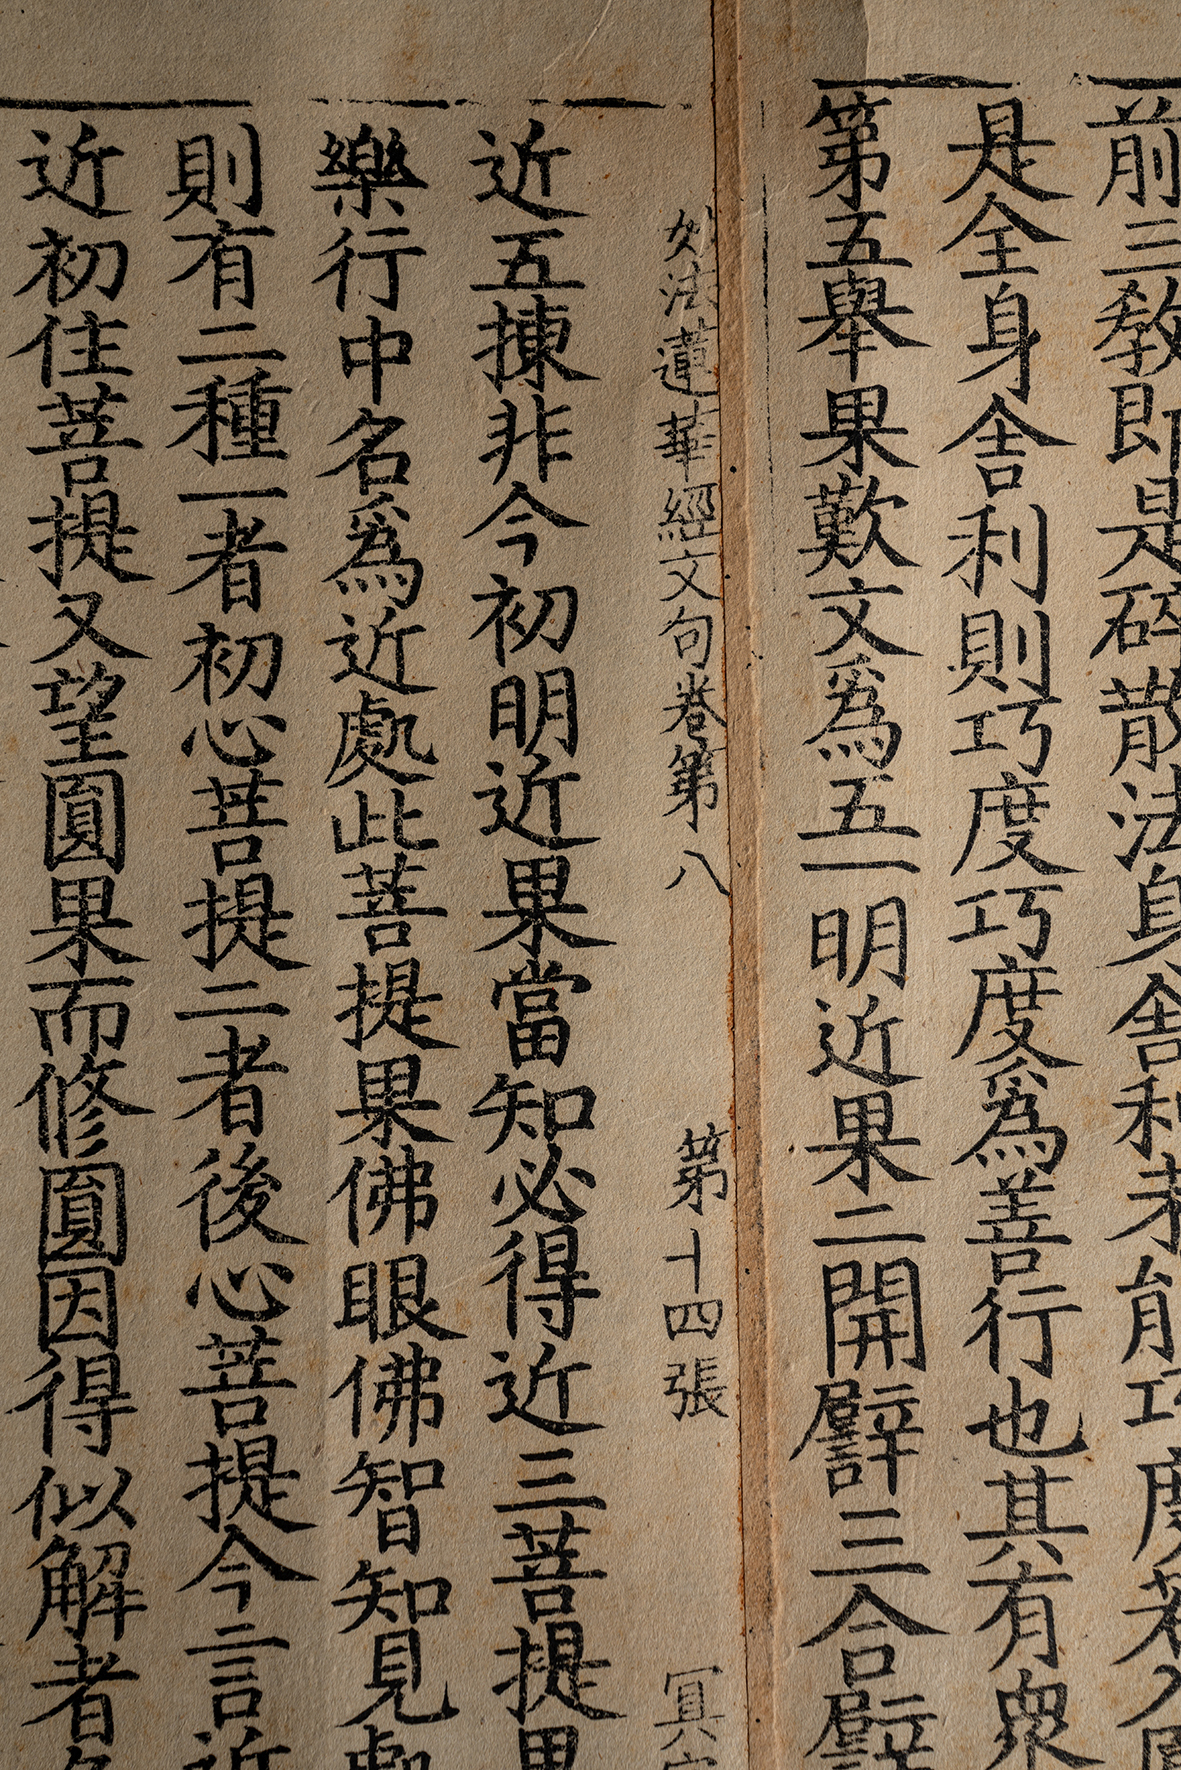 前三教即是碎散法身舍利未能巧度若入
是全身舍利則巧度巧度為善行也其有眾
第五舉果歎文為五一明近果二開譬三合譬
妙法蓮華經文句卷第八 第十四張
近五揀非今初明近果當知必得近三菩提果
樂行中名為近處此菩提果佛眼佛智知見
則有二種一者初心菩提二者後心菩提今言近
近初住菩提又望圓果而修圓因得似解者